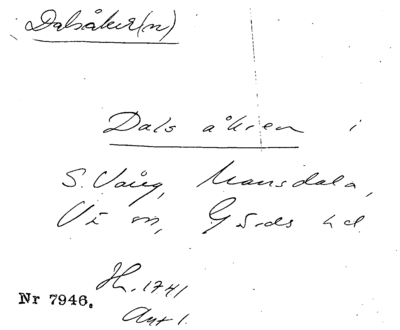 Dalsåker(n)
Dals åkren i
S. Vång, Mansdala,
Vi sn, Gärds hd
Nr 7946.
Hh. 1741
Akt 1.